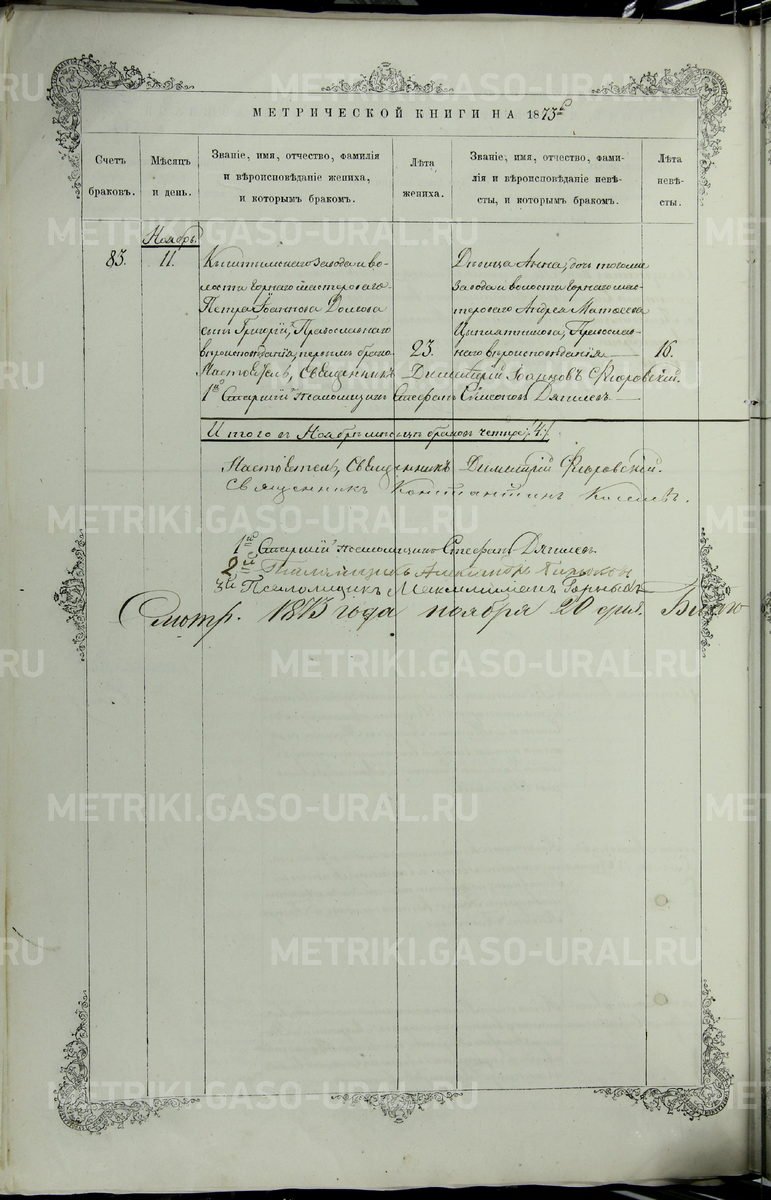 МЕТРИЧЕСКОЙ КНИГИ НА 1873й
Счетъ браковъ.
Мѣсяцъ и день.
Званіе, имя, отчество, фамилія
и вѣроисповѣданіе жениха,
и которымъ бракомъ.
Лѣта жениха.
Званіе, имя, отчество, фами-
лія и вѣроисповѣданіе невѣ-
сты, и которымъ бракомъ.
Лѣта невѣ-
сты.
Ноябрь.
85. 11.
Кыштымскаго завода и во-
лости горнаго мастероваго
Петра Іоаннова
сынъ Григорій, Православнаго
вѣроисповѣданія, первымъ брако
23.
Дѣвица Анна, дочь тогоже
завода и волости горнаго мас-
тероваго Андрея Матѳеева
Ципляткова, Православ-
наго вѣроисповѣданія
16.
Настоятель, Священникъ Димитрій Іоанновъ
1й Старшій Псаломщикъ Стефанъ Симеоновъ Дягилевъ
Итого въ Ноябрѣ мѣсяцѣ браковъ четыре /4/.
Настоятель, Священникъ Димитрій
Священникъ Константинъ
1й Старшій Псаломщикъ Стефанъ Дягилевъ
2й Псаломщикъ Александръ
3й Псаломщикъ Максимиліанъ
Смотр. 1873 года ноября 20 дня.
METRIKI.GASO-URAL.RU